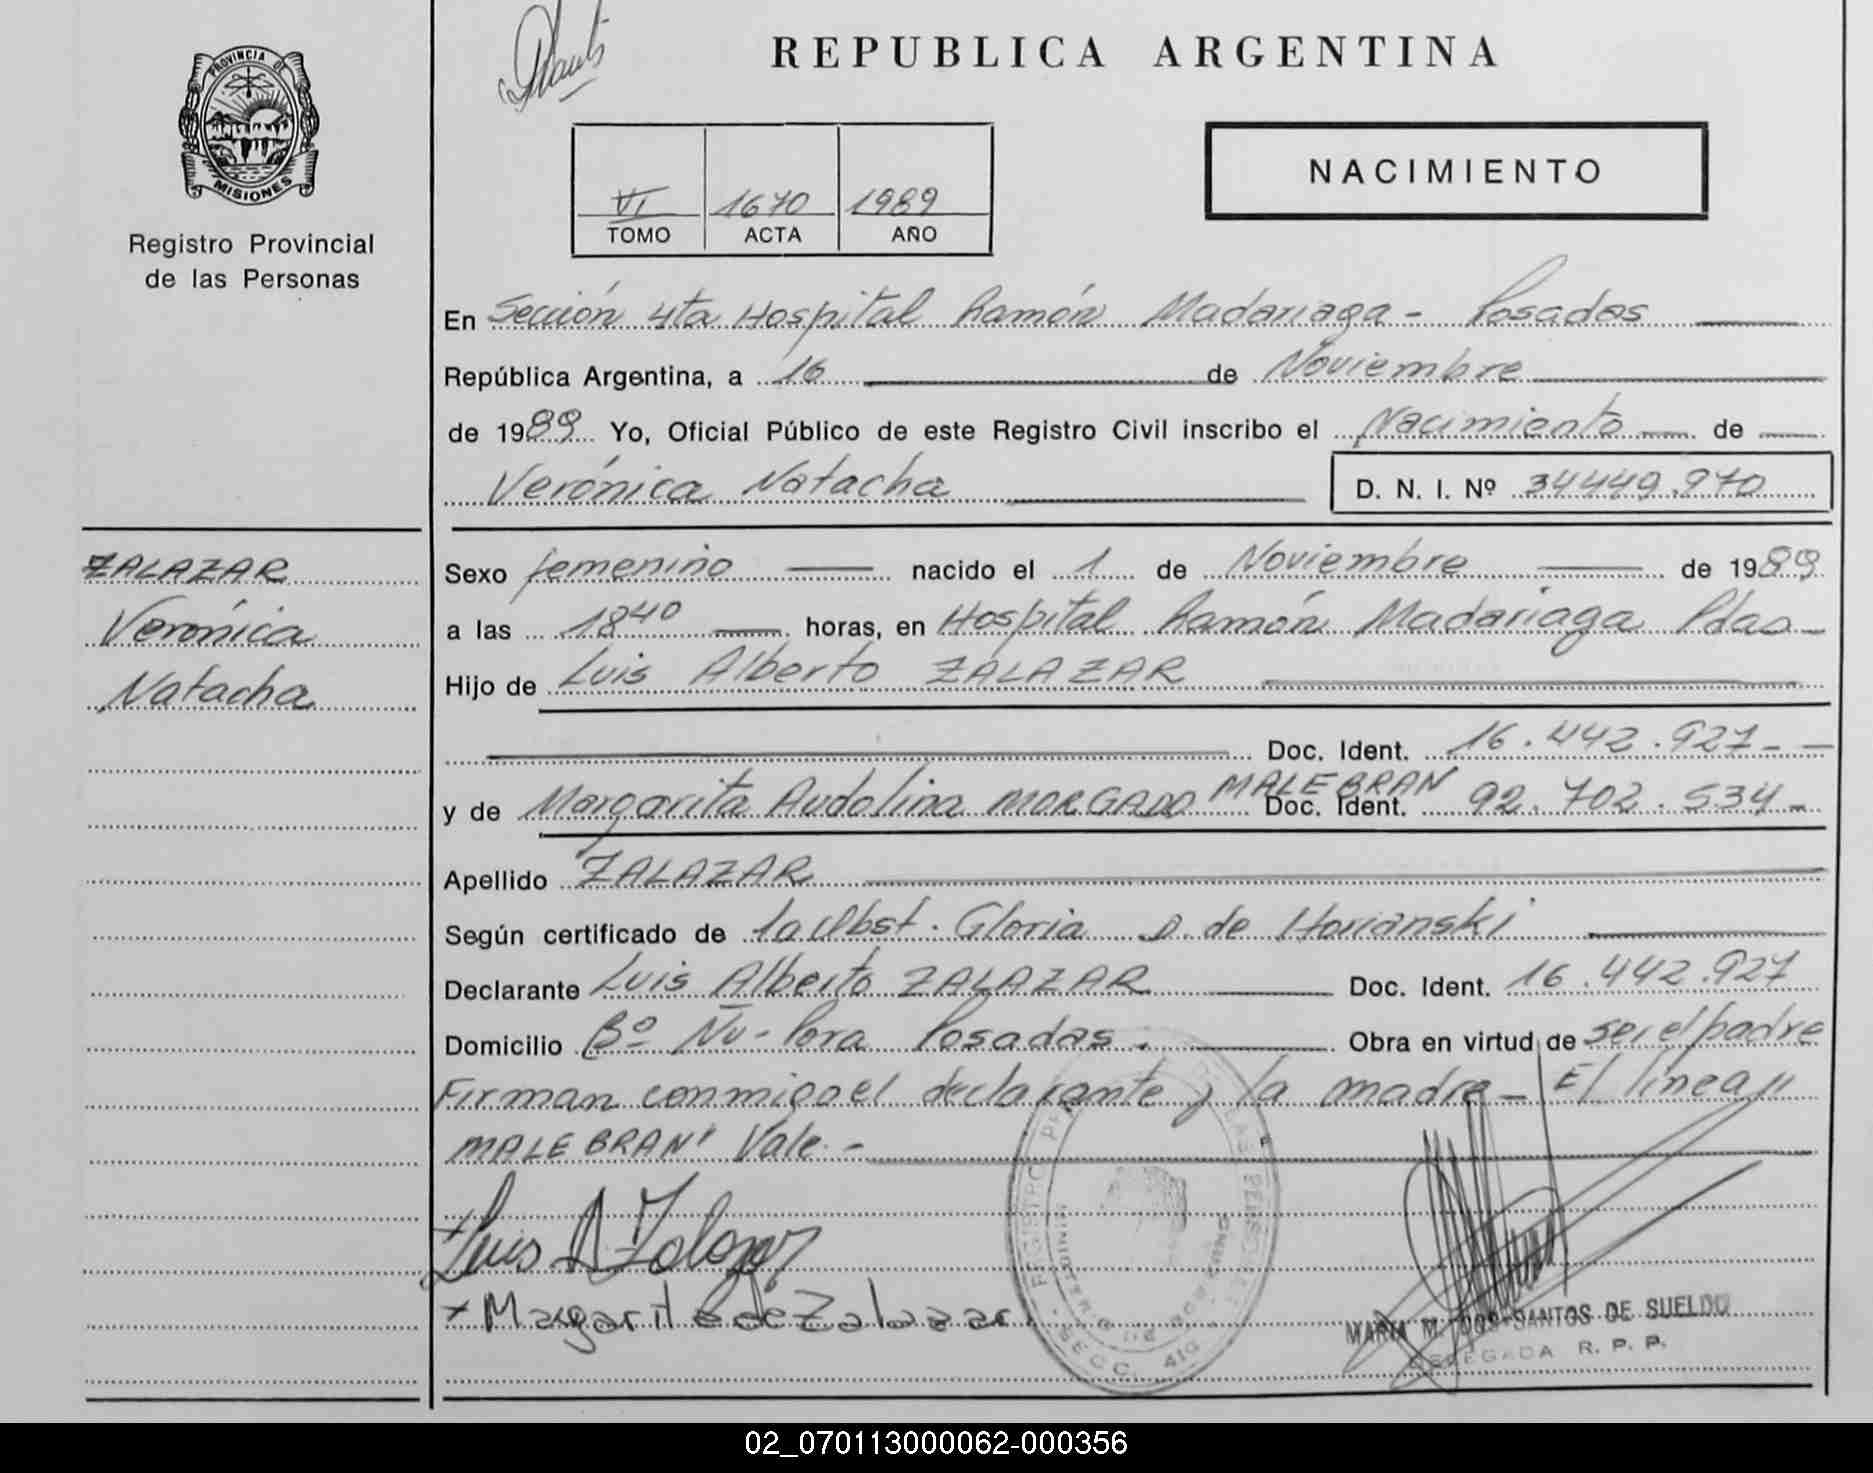 REPUBLICA ARGENTINA
PROVINCIA DE MISIONES
Registro Provincial
de las Personas
VI 1670 1989
TOMO ACTA AÑO
NACIMIENTO
En Sección 4ta Hospital Ramón Madariaga - Posadas
República Argentina, a 16 de Noviembre
de 1989 Yo, Oficial Público de este Registro Civil inscribo el Nacimiento de
Verónica Natacha D. N. I. Nº 34449.970
ZALAZAR
Verónica
Natacha
Sexo femenino nacido el 1 de Noviembre de 1989
a las 18 40 horas, en Hospital Ramón Madariaga Pdas
Hijo de Luis Alberto ZALAZAR
Doc. Ident. 16.442.927
y de Margarita Audolina MORGADO MALEBRAN Doc. Ident. 92.702.534
Apellido ZALAZAR
Según certificado de la Obst. Gloria D. de Horianski
Declarante Luis Alberto ZALAZAR Doc. Ident. 16.442.927
Domicilio Bº Ñu-Pora Posadas. Obra en virtud de ser el padre
Firman conmigo el declarante y la madre - El línea "
MALEBRAN" Vale.-
Luis A Zalazar
Margarita de Zalazar
MARIA M. DOS SANTOS DE SUELDO
DELEGADA R. P. P.
02_070113000062-000356